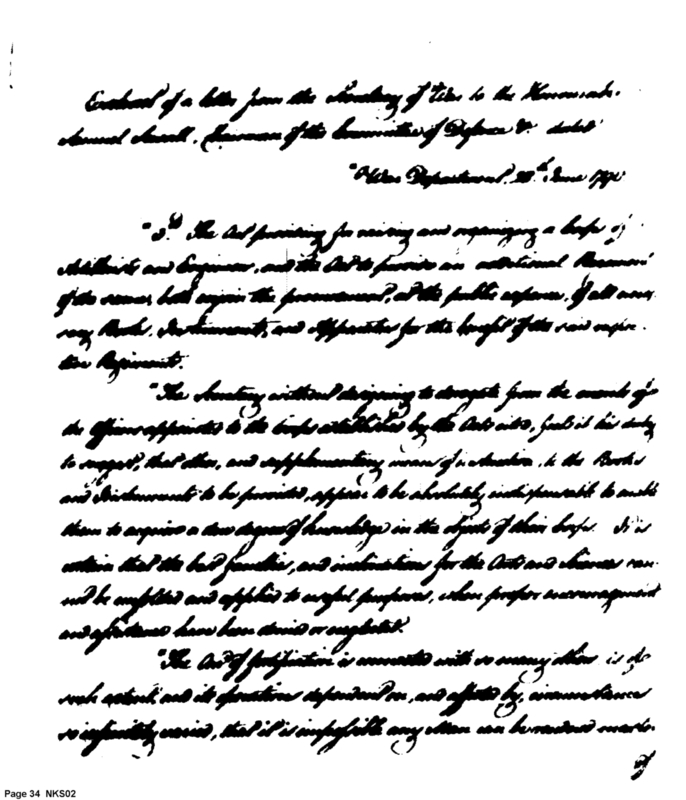 Extract of a letter from the Secretary of War to the Honourab.
Samuel Sewall, Chairman of the Committee of Defence &c dated
"War Department, 28th June 179
"3d The Act providing for raising and organizing a Corps of
Artillerists and Engineers, and the Act to provide an additional Regiment
of the same, both enjoin the procurement, at the public expence, of all neces-
sary Books, Instruments, and Apparatus for the benefit of the said respec-
tive Regiments.
"The Secretary without designing to derogate from the merits of
the Officers appointed to the Corps established by the Acts cited, feels it his duty
to suggest, that other, and supplementary means of instruction, to the Books
and Instruments to be provided, appear to be absolutely indispensable to enable
them to acquire a due degree of knowledge in the objects of their Corps. It is
certain that the best faculties, and inclinations for the Arts and Sciences can-
not be unfolded and applied to useful purposes, when proper encouragement
and assistance have been denied or neglected.
"The Art of fortification is connected with so many others is of
such extent, and its operations dependent on, and affected by, circumstances
so infinitely varied, that it is impossible any Man can be rendered master
of
Page 34 NKS02